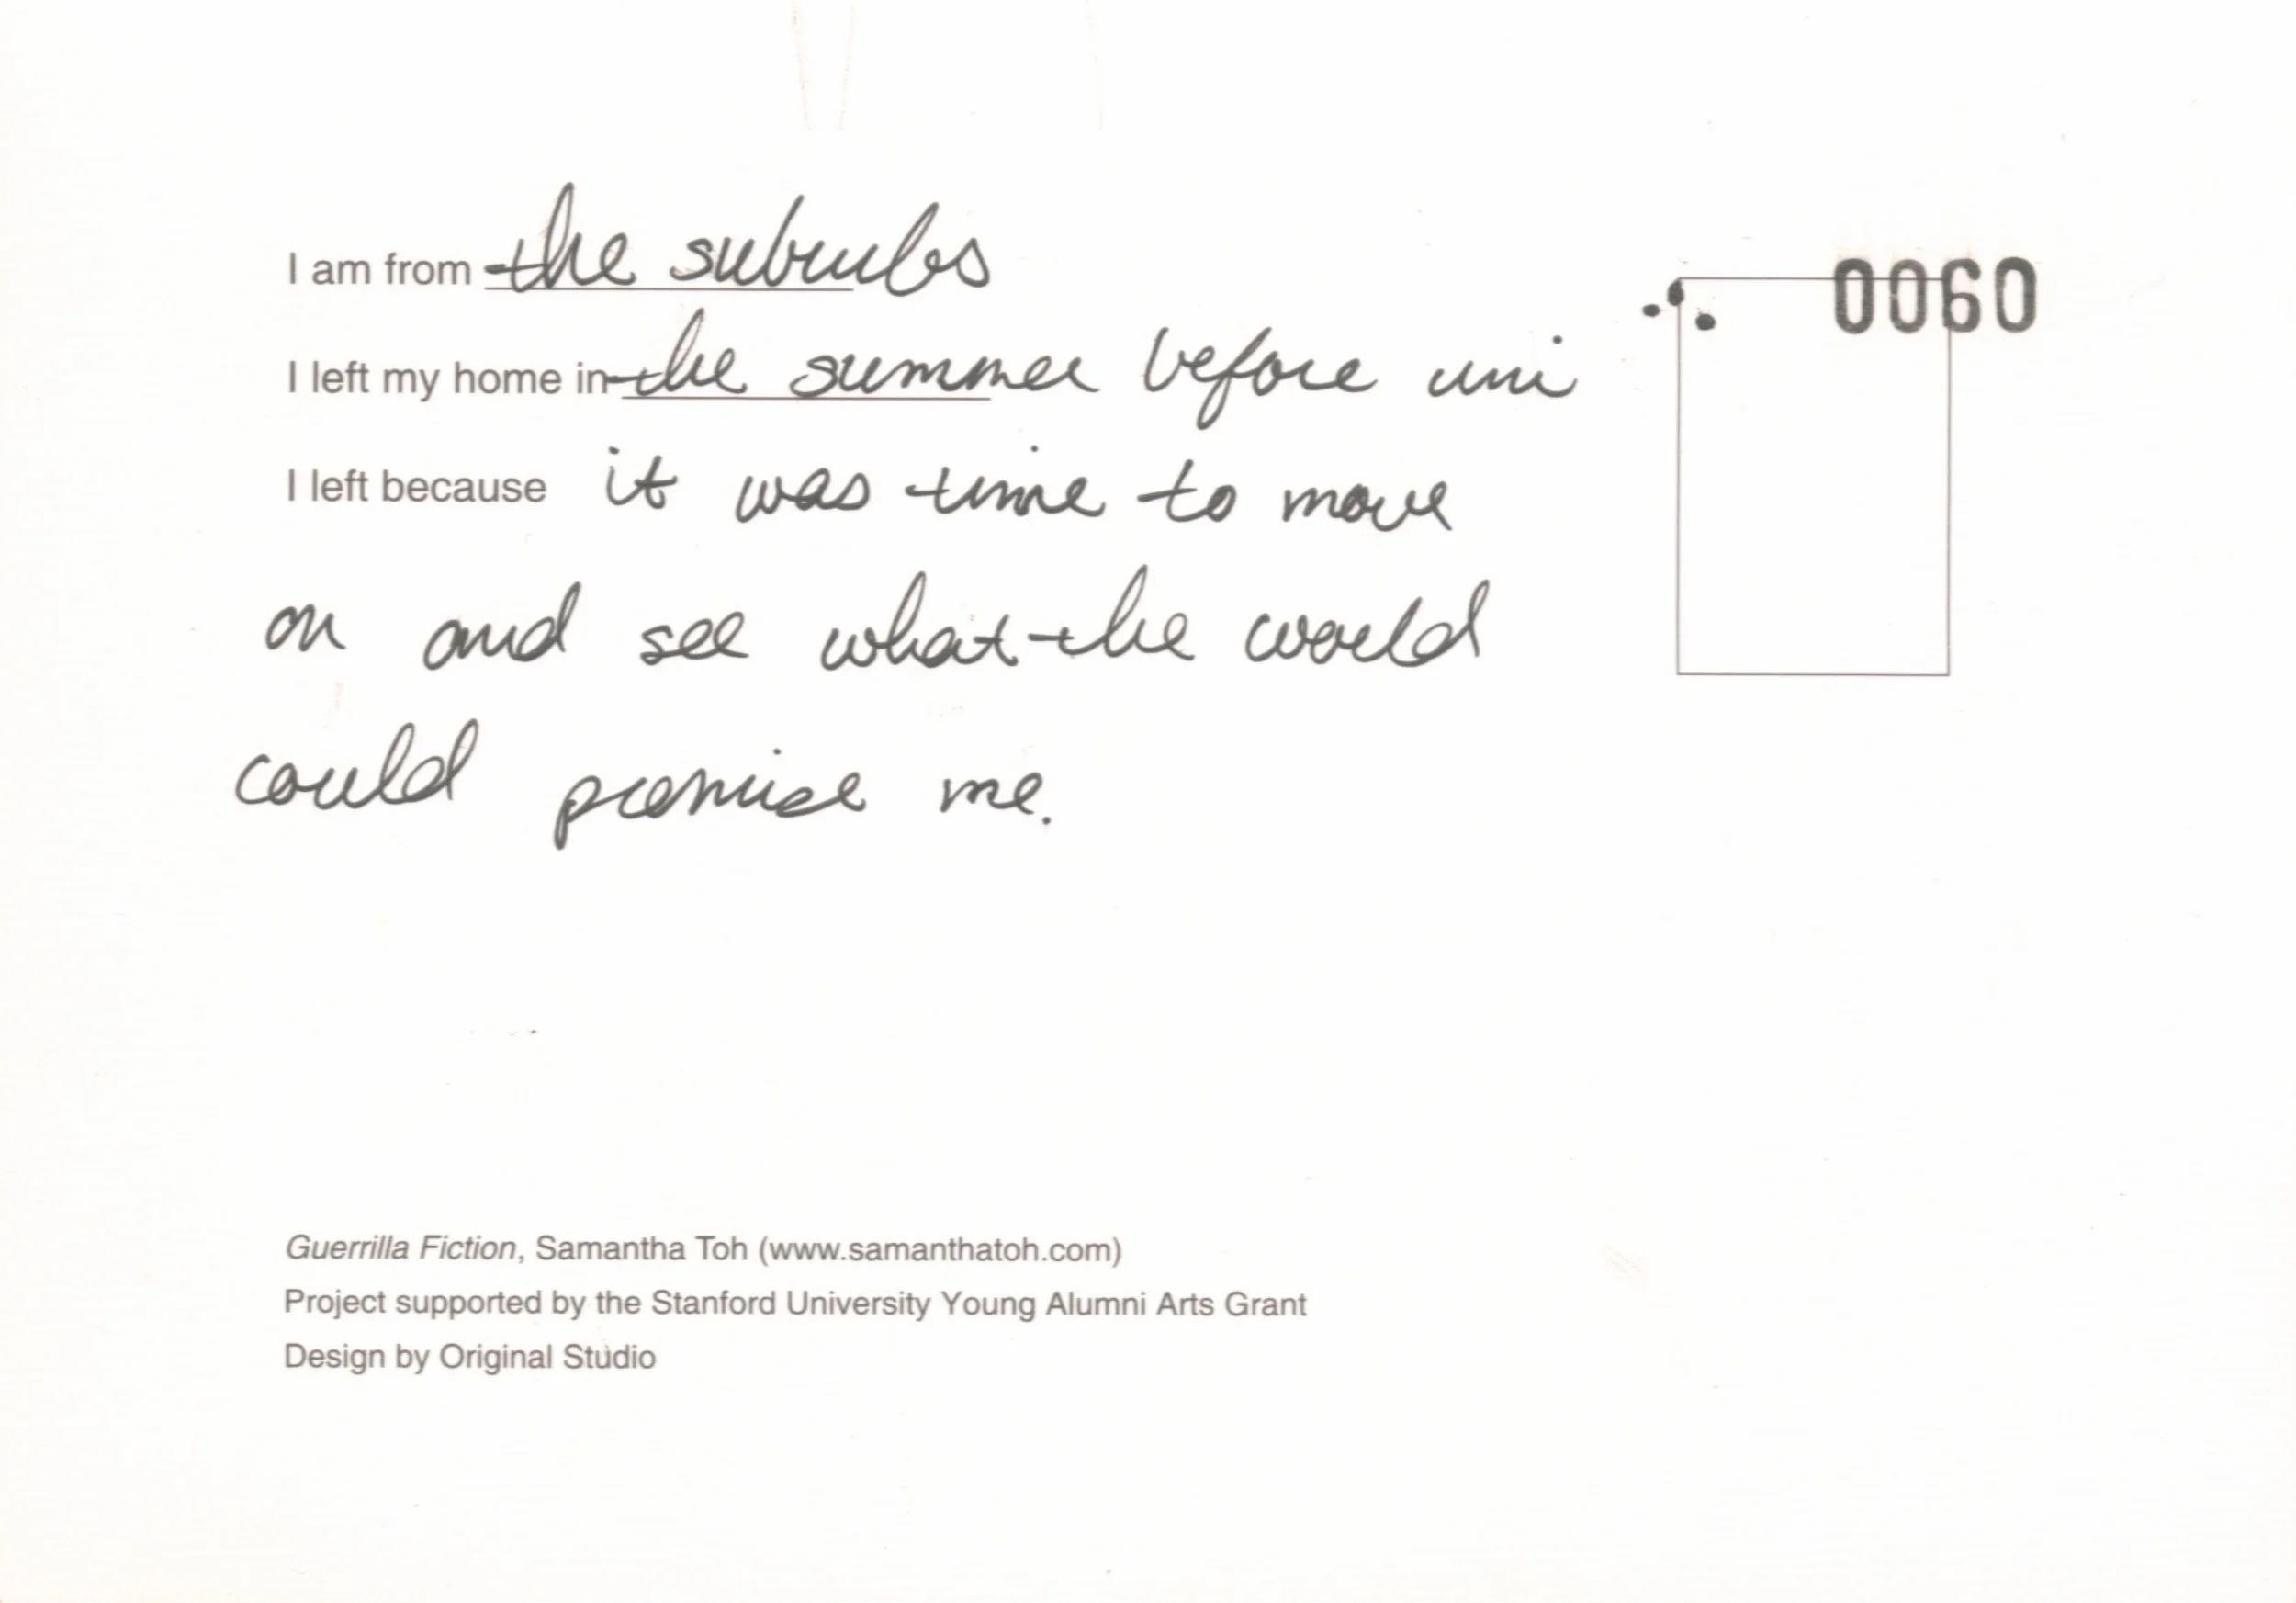 I am from the suburbs
0060
I left my home in the summer before uni
I left because it was time to move
on and see what the world
could promise me.
Guerrilla Fiction, Samantha Toh (www.samanthatoh.com)
Project supported by the Stanford University Young Alumni Arts Grant
Design by Original Studio